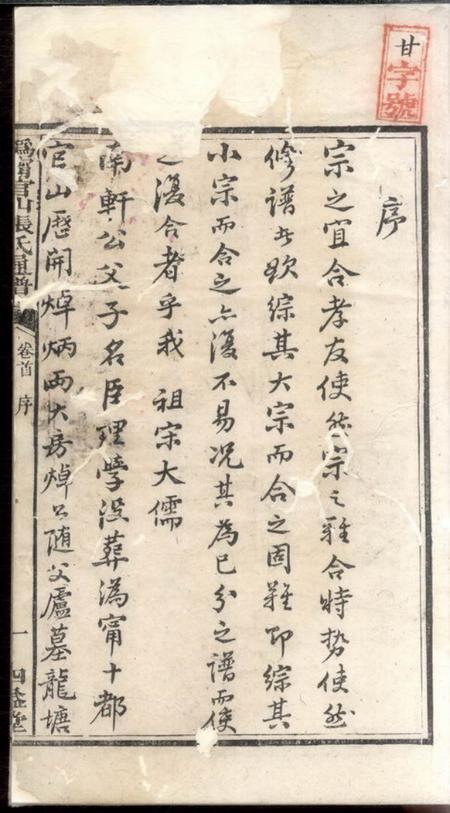 甘
字號
序
宗之宜合孝友使然宗之難合時勢使然
修譜者欲綜其大宗而合之固難即綜其
小宗而合之亦復不易况其為已分之譜而使
之復合者乎我 祖宗大儒
南軒公父子名臣理學没葬溈甯十都
官山歷開焯炳兩大房焯公随父廬墓龍塘
溈甯官山張氏通譜
卷首 序
一 四益堂